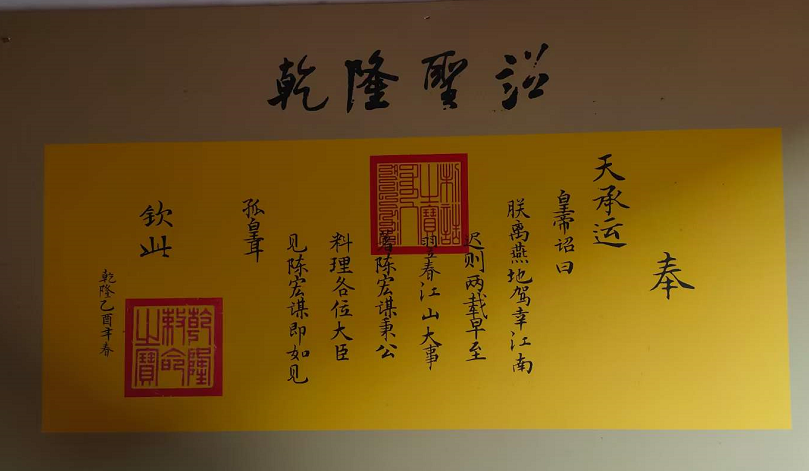 乾隆聖詔
奉
天承运
皇帝诏曰
朕离燕地驾幸江南
迟则两载早至
春江山大事
陈宏谋秉公
料理各位大臣
见陈宏谋即如见
孤皇耳
钦此
乾隆乙酉年春
乾隆
敕命
之寶